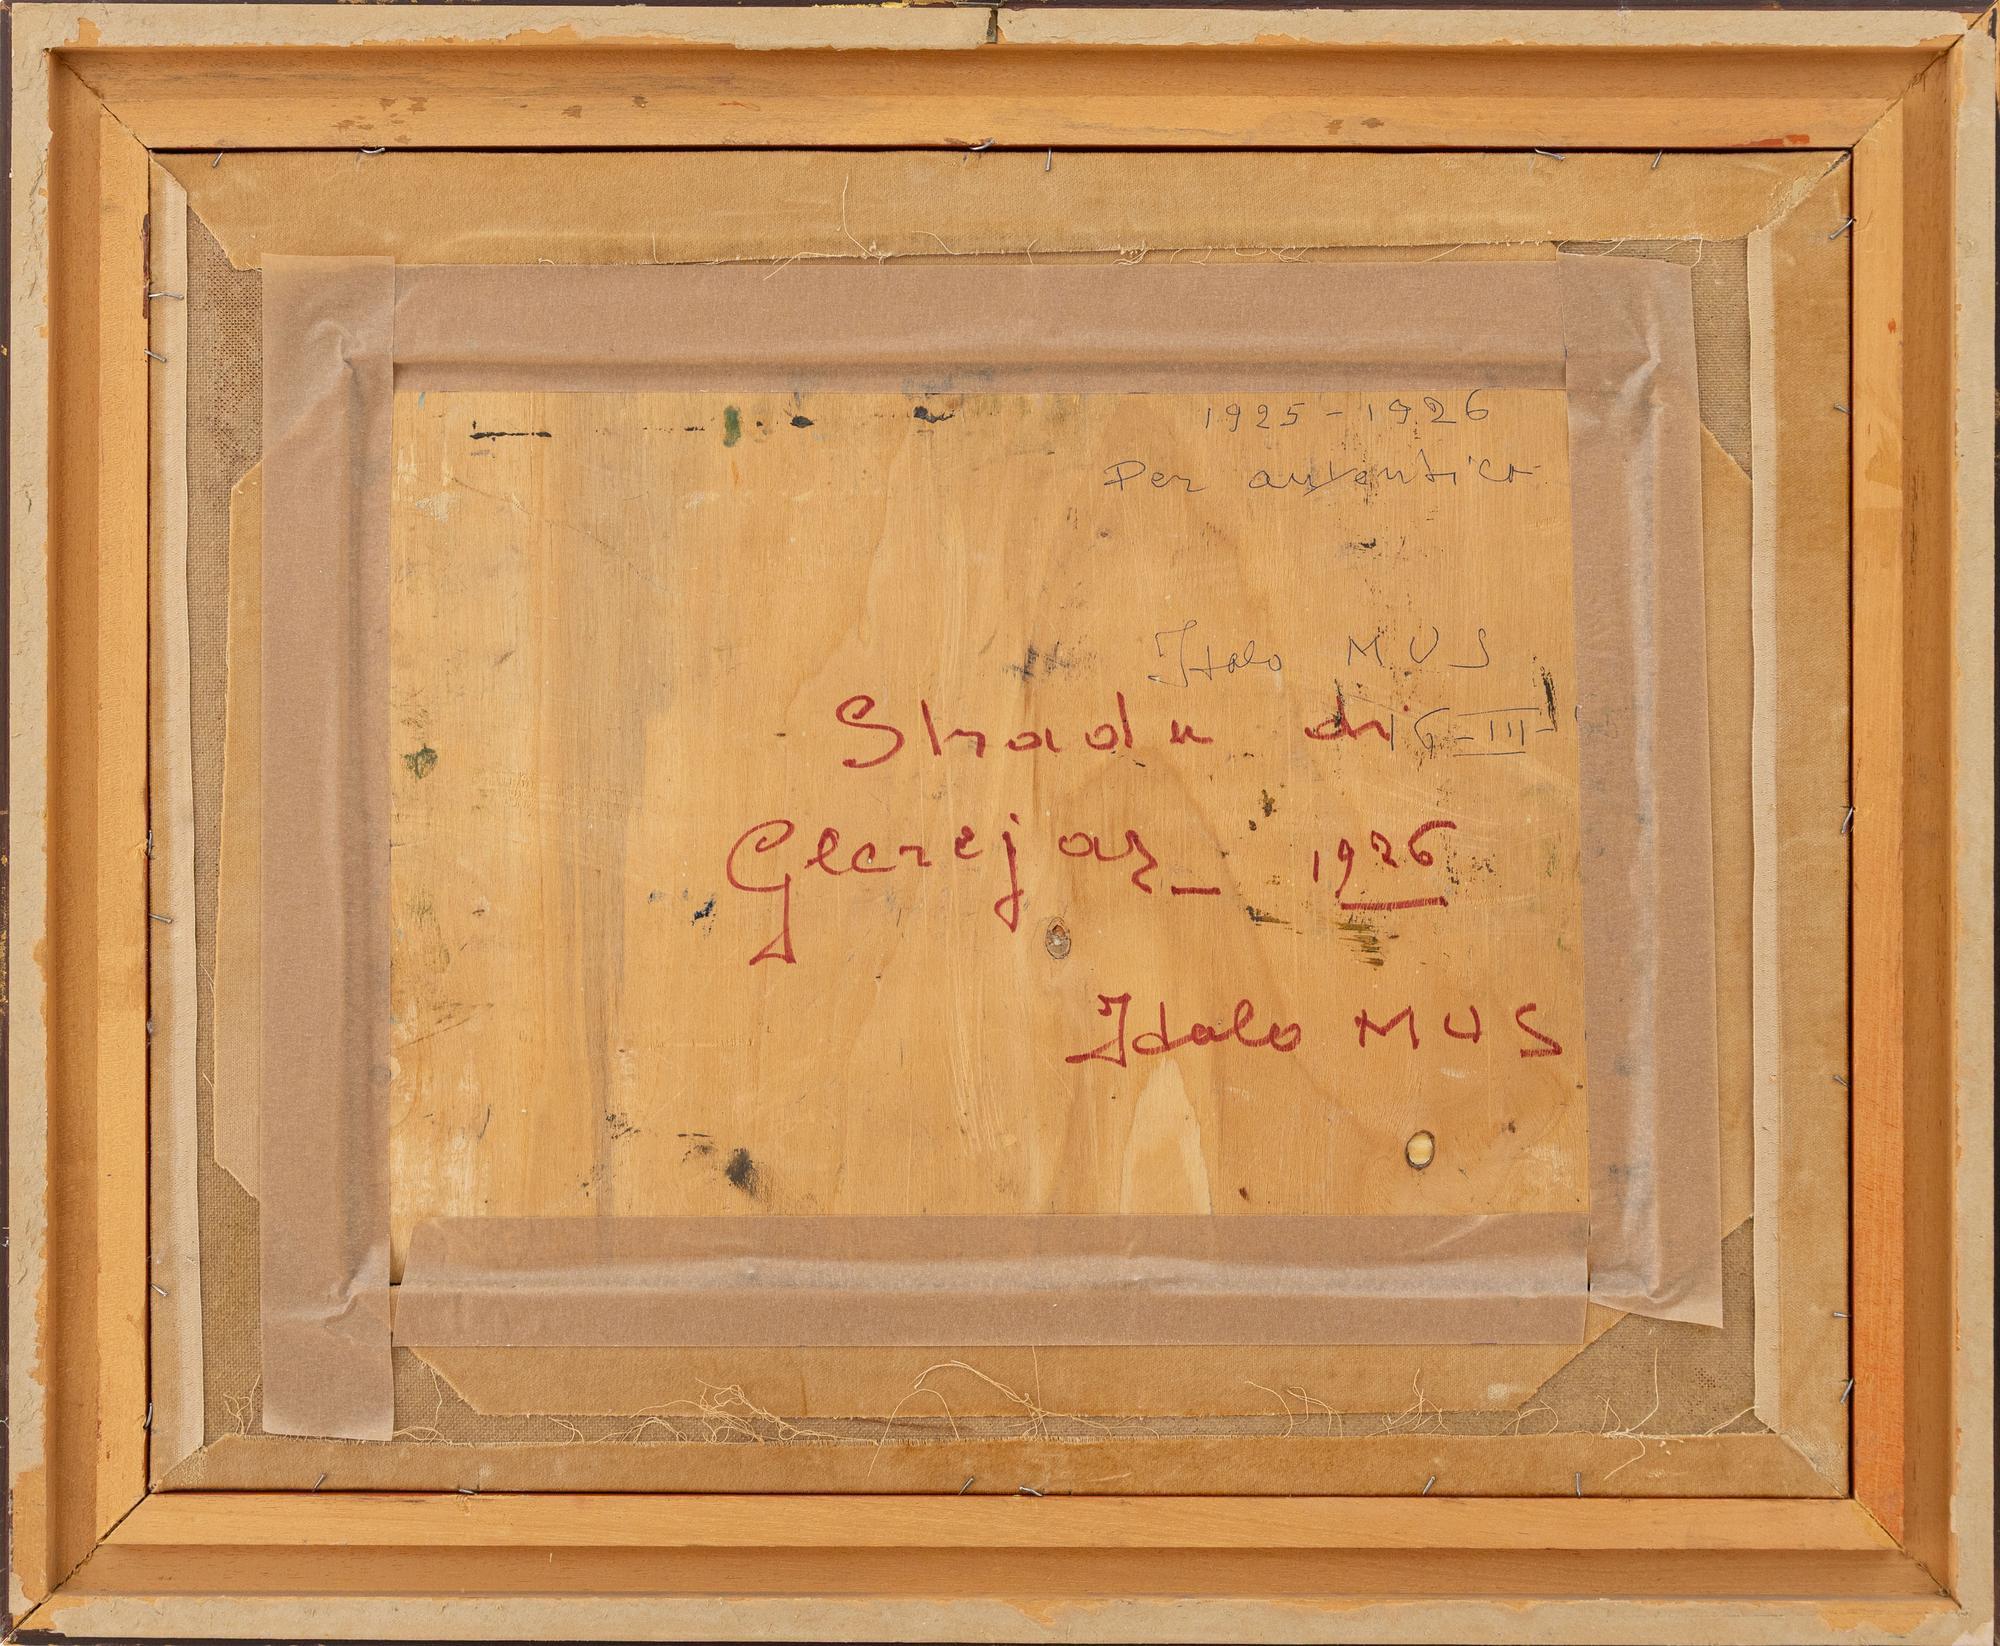 1925-1926
Per autentica
Italo MUS
Strada di
16-III-
Glerejaz_ 1926
Italo MUS